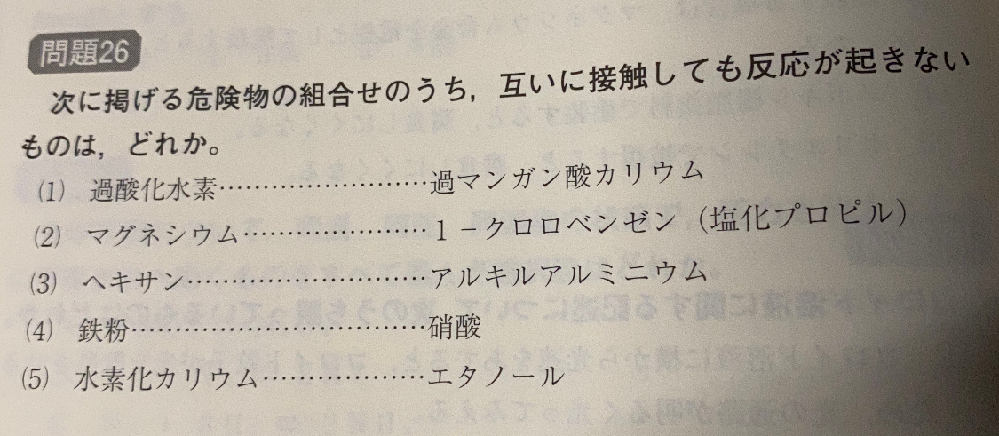 問題26
次に掲げる危険物の組合せのうち，互いに接触しても反応が起きない
ものは，どれか。
(1) 過酸化水素……………………過マンガン酸カリウム
(2) マグネシウム…………………1－クロロベンゼン（塩化プロピル）
(3) ヘキサン………………………アルキルアルミニウム
(4) 鉄粉……………………………硝酸
(5) 水素化カリウム………………エタノール